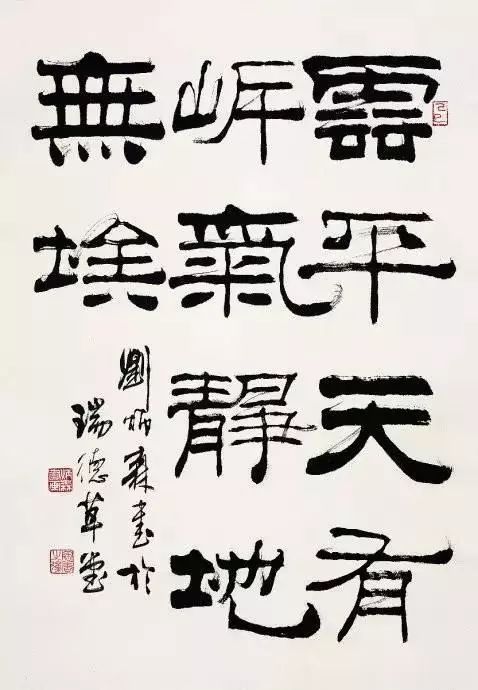 平天有
氣靜地
無埃
劉炳森書於
瑞德草堂